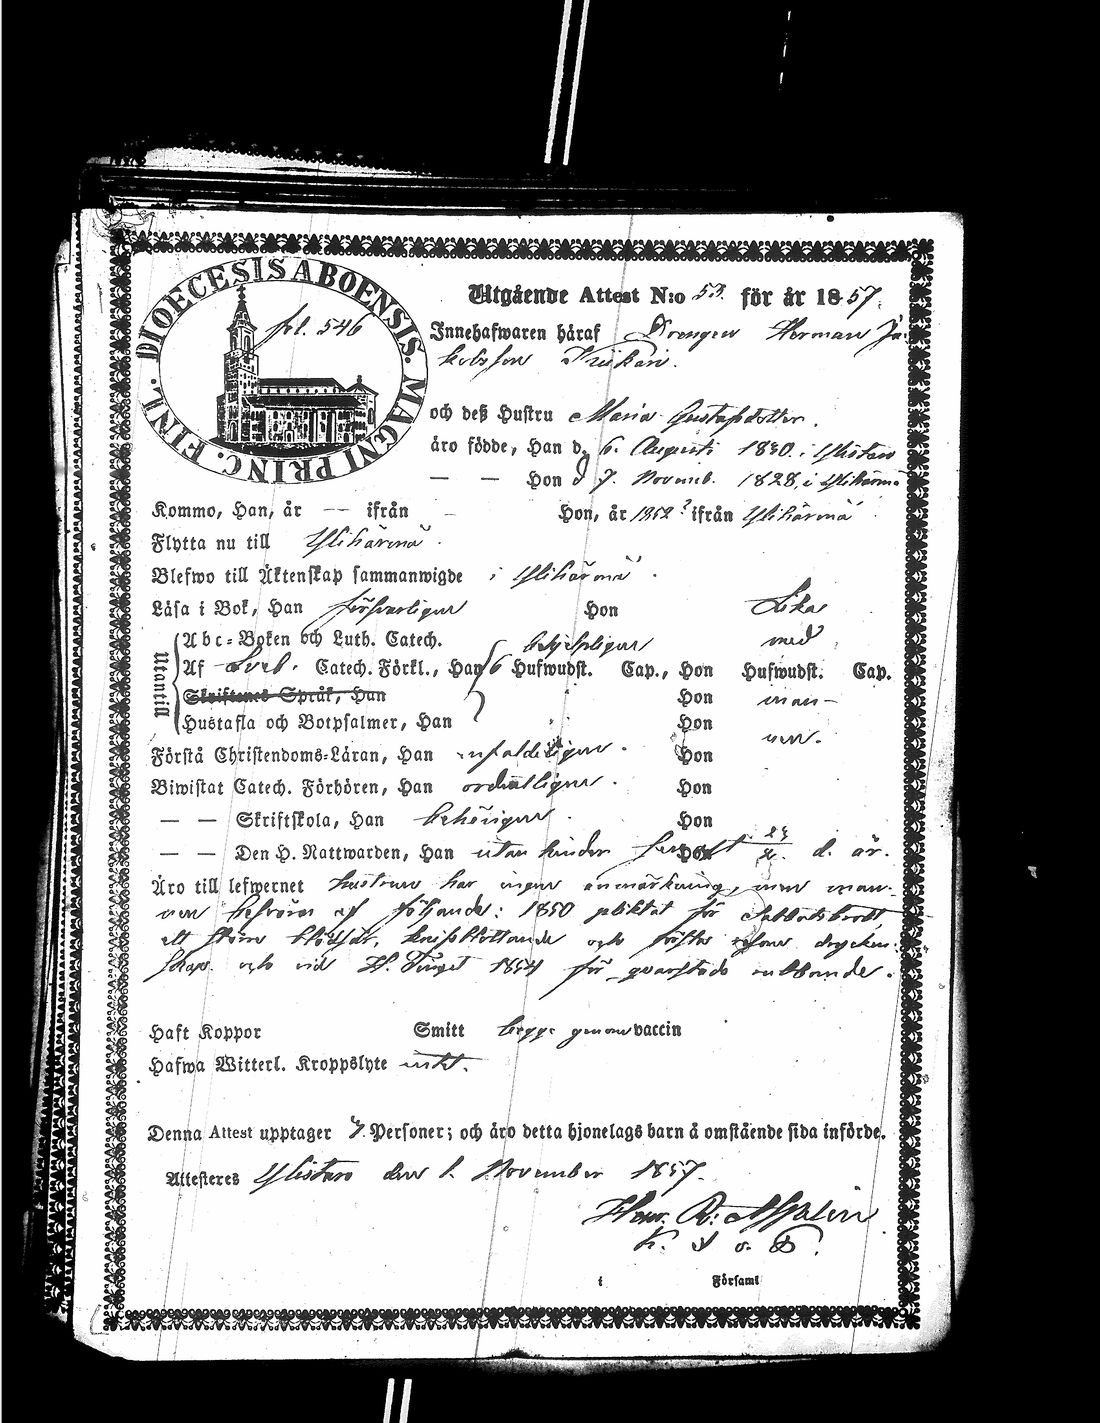 DIOECESIS ABOENSIS. MAGNI PRINC. FINL.
fol. 546
Utgående Attest N:o 53. för år 1857.
Innehafwaren häraf Drengen Herman Ja-
kobsson
och deß Hustru Maria Gustafsdotter.
äro födde, Han d. 6. Augusti 1830. i Ylistaro
— — Hon d 7. Novemb. 1828, i Ylihärmä
Kommo, Han, år — ifrån – Hon, år 1852? ifrån Ylihärmä
Flytta nu till Ylihärmä.
Blefwo till Äktenskap sammanwigde i Ylihärmä.
Läsa i Bok, Han försvarligen Hon Lika
Utantill
Abc-Boken och Luth. Catech. behjelpligen med
Af Sveb. Catech. Förkl., Han 6 Hufwudst. Cap., Hon Hufwudst. Cap.
Skriftenes Språk, Han Hon man-
Hustafla och Botpsalmer, Han Hon
Förstå Christendoms-Läran, Han enfaldeligen. Hon nen.
Biwistat Catech. Förhören, Han ordentligen. Hon
— — Skriftskola, Han behörigen. Hon
— — Den H. Nattwarden, Han utan hinder Hon d. år.
Äro till lefwernet hustrun har ingen anmärkning, men man-
nen befrias af följande: 1850 pliktat för Sabbatsbrott
ett större blodsår, och
och vid H. Tinget 1854 för qvarstads
Haft Koppor Smitt begge genom vaccin
Hafwa Witterl. Kroppslyte intet.
Denna Attest upptager 7. Personer; och äro detta hjonelags barn å omstående sida införde.
Attesteres Ylistaro den 1. November 1857.
Henr. R:
K.
i Församl